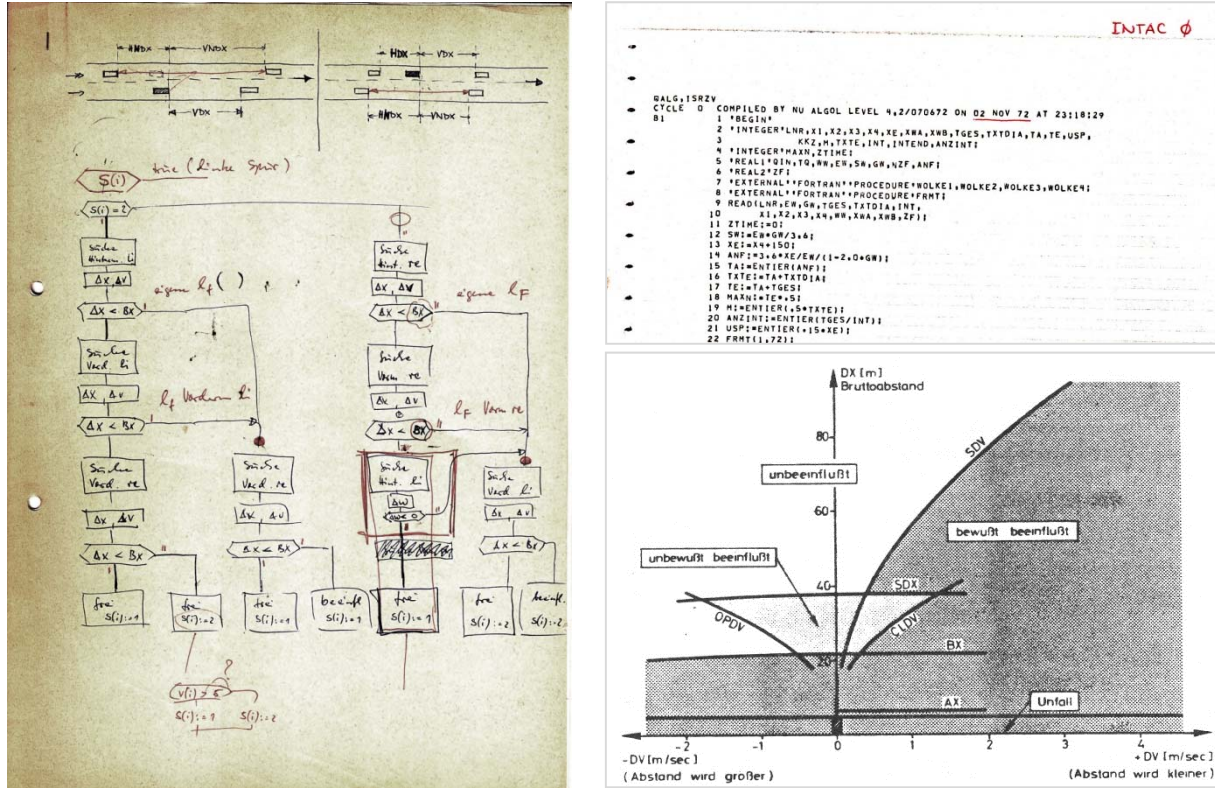 HNDX VNDX HDX VDX
VDX HNDX VNDX
S(i) true (linke Spur)
S(i)=2
Suche
Hinterm li
Suche
Hint. re
Δx, Δv
Δx, Δv
eigene lf ( )
eigene lF
Δx < Bx
Δx < Bx
Suche
Vord. li
Suche
Vorn re
Δx, Δv
Δx, Δv
lf Vorderm li
lF Vorn re
Δx < Bx
Δx < Bx
Suche
Vord. re
Suche
Vord. li
Suche
Hint. li
Suche
Vord li
Δx, Δv
Δx, Δv
Δw
Δx, Δv
Δx < Bx
Δx < Bx
Δw < 0
Δx < Bx
frei
S(i):=1
frei
S(i):=2
frei
S(i):=1
beeinfl
S(i):=1
frei
S(i):=1
frei
S(i):=2
beeinfl.
S(i):=2
?
S(i):=1 S(i):=2
INTAC Ø
@ALG,ISRZV
CYCLE 0 COMPILED BY NU ALGOL LEVEL 4,2/070672 ON 02 NOV 72 AT 23:18:29
B1 1 'BEGIN'
2 'INTEGER'LNR,X1,X2,X3,X4,XE,XWA,XWB,TGES,TXTDIA,TA,TE,USP,
3 KKZ,M,TXTE,INT,INTEND,ANZINT;
4 'INTEGER'MAXN,ZTIME;
5 'REAL1'QIN,TQ,WW,EW,SW,GW,NZF,ANF;
6 'REAL2'ZF;
7 'EXTERNAL''FORTRAN''PROCEDURE'WOLKE1,WOLKE2,WOLKE3,WOLKE4;
8 'EXTERNAL''FORTRAN''PROCEDURE'FRMT;
9 READ(LNR,EW,GW,TGES,TXTDIA,INT,
10 X1,X2,X3,X4,WW,XWA,XWB,ZF);
11 ZTIME:=0;
12 SW:=EW*GW/3,6;
13 XE:=X4+150;
14 ANF:=3.6*XE/EW/(1-2,0*GW);
15 TA:=ENTIER(ANF);
16 TXTE:=TA+TXTDIA;
17 TE:=TA+TGES;
18 MAXN:=TE*,5;
19 M:=ENTIER(,5*TXTE);
20 ANZINT:=ENTIER(TGES/INT);
21 USP:=ENTIER(,15*XE);
22 FRMT(1,72);
DX [m]
Bruttoabstand
80
SDV
unbeeinflußt
60
bewußt beeinflußt
unbewußt beeinflußt
40
SDX
OPDV
CLDV
BX
20
AX
Unfall
-2 -1 0 1 2 3 4
-DV [m/sec] +DV [m/sec]
(Abstand wird großer) (Abstand wird kleiner)